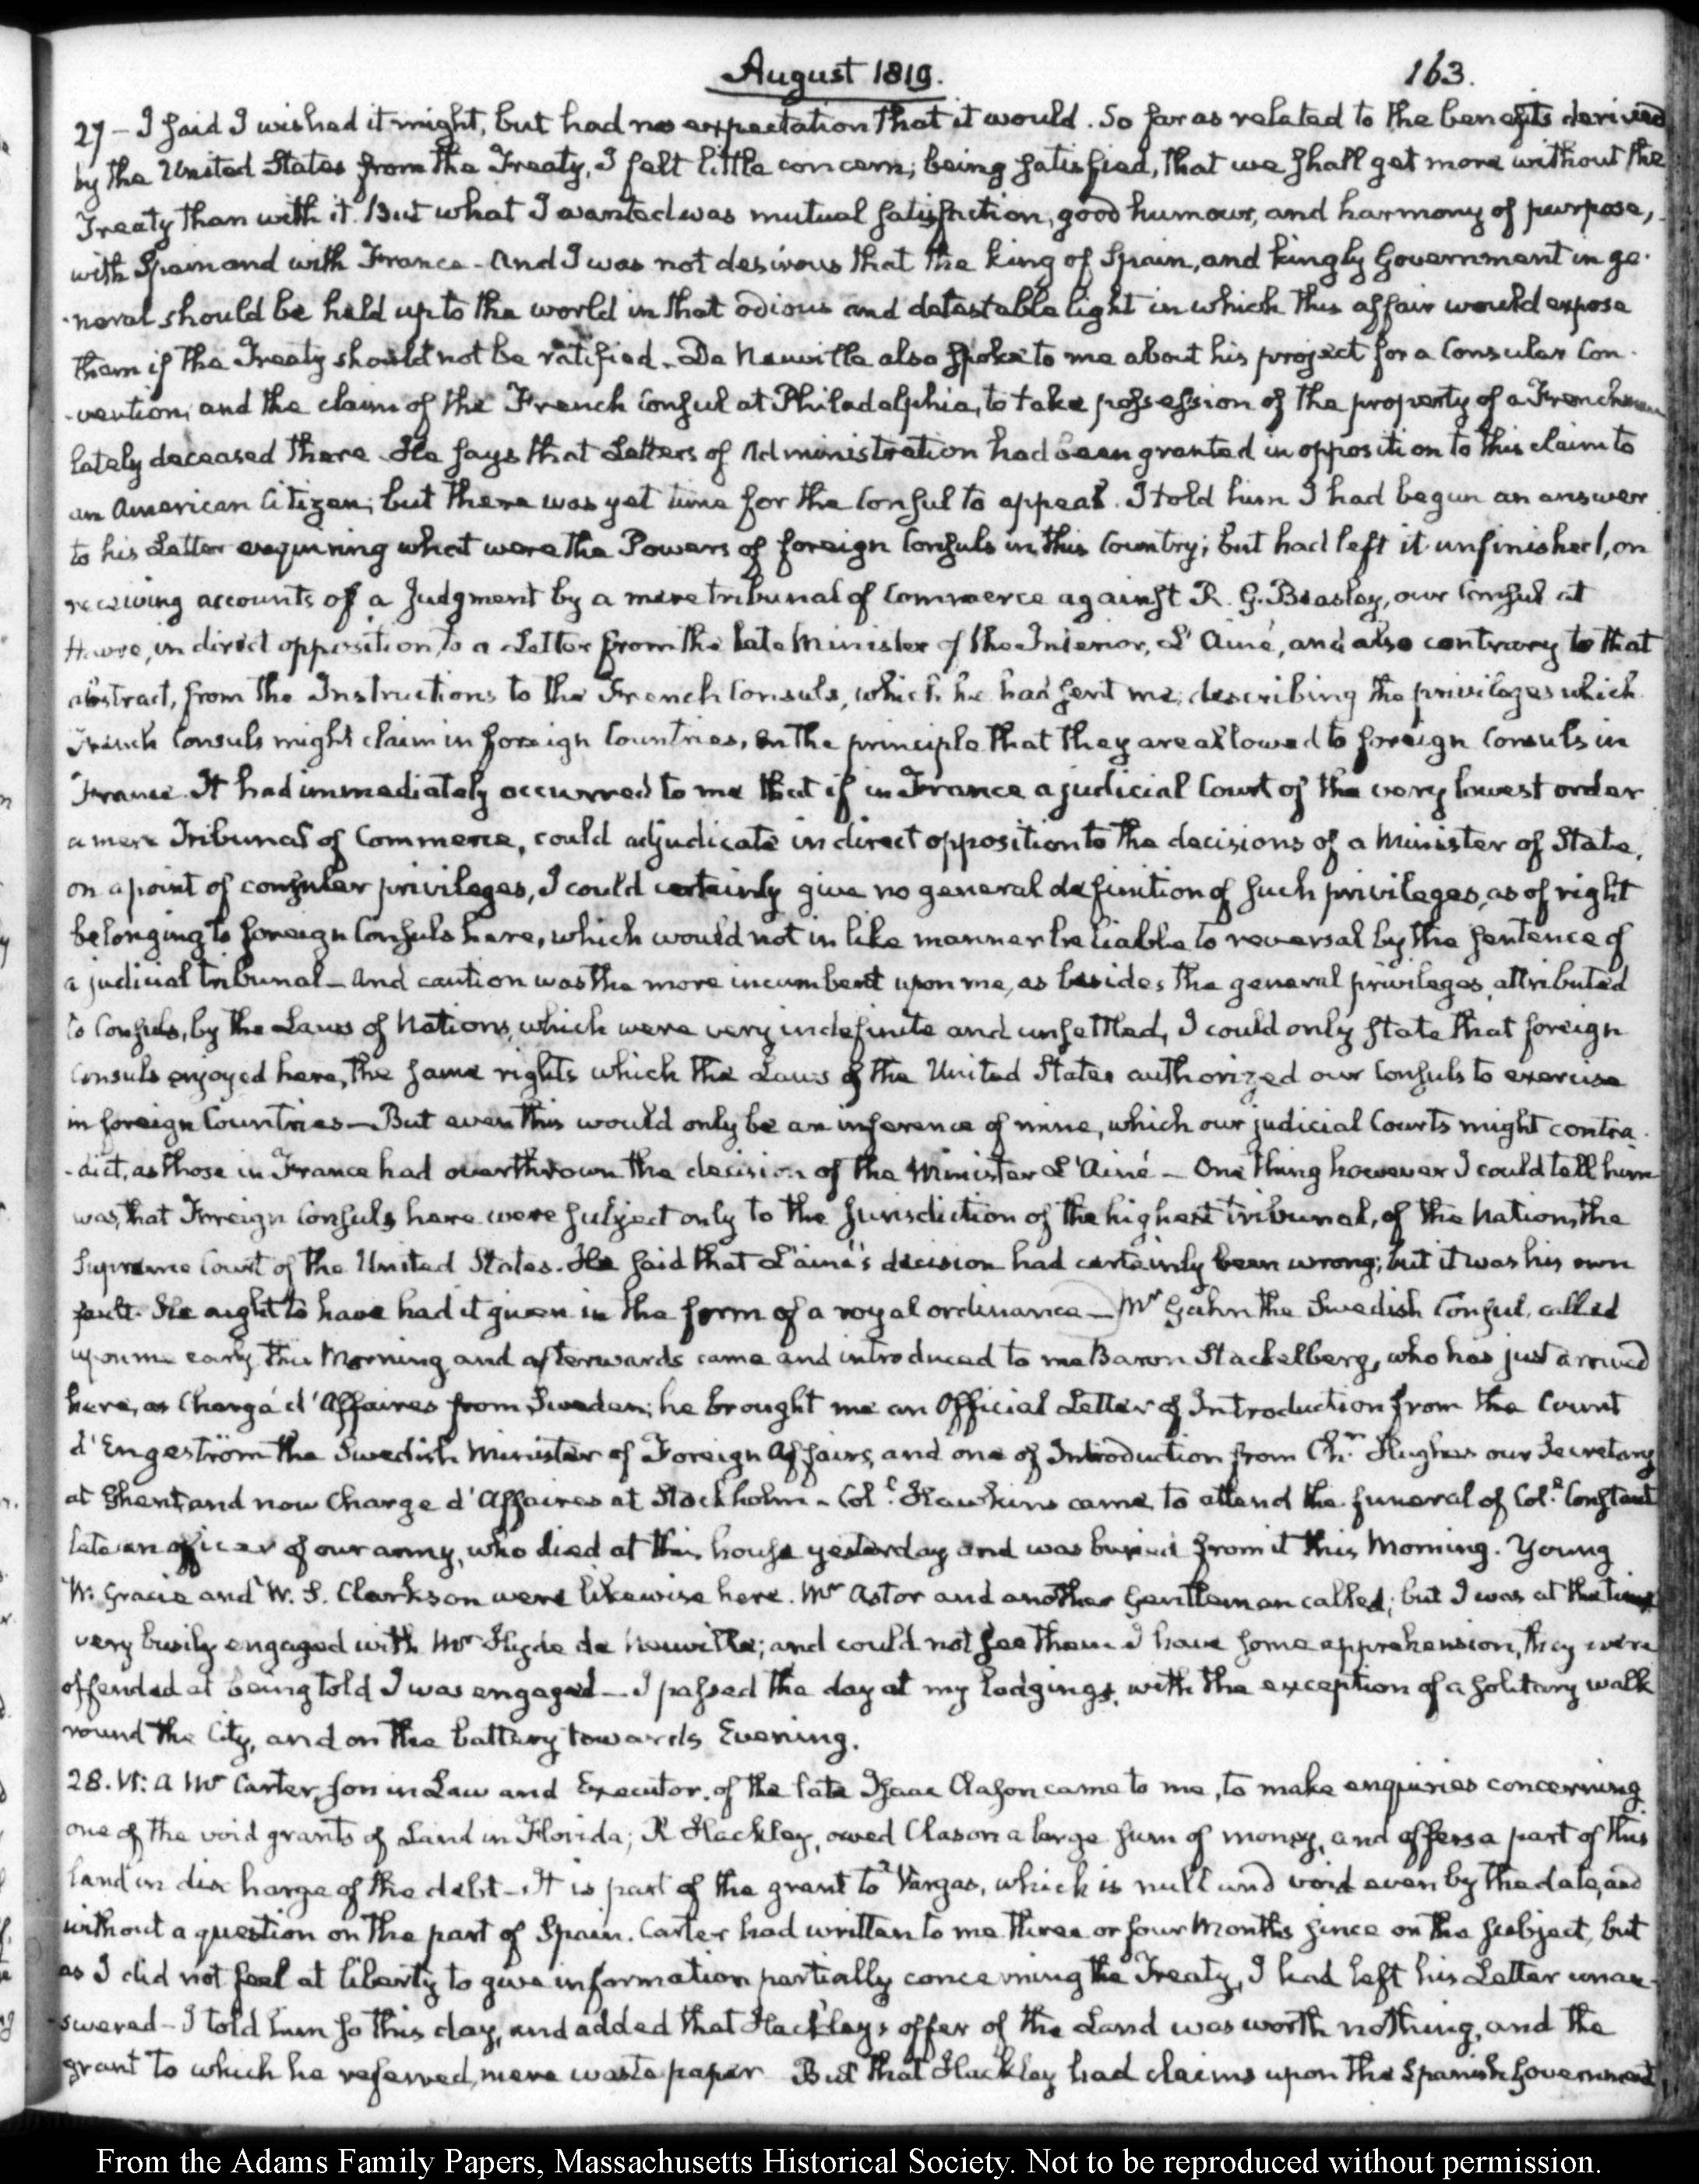 August 1819. 163.
27 – I said I wished it might, but had no expectation that it would. So far as related to the benefits derived
by the United States from the Treaty, I felt little concern; being satisfied, that we shall get more without the
Treaty than with it. But what I wanted was mutual satisfaction, good humour, and harmony of purpose,
with Spain and with France – And I was not desirous that the king of Spain, and kingly Government in ge-
-neral should be held up to the world in that odious and detestable light in which this affair would expose
them if the Treaty should not be ratified – De Neuville also spoke to me about his project for a Consular Con-
-vention, and the claim of the French Consul at Philadelphia, to take possession of the property of a Frenchman
lately deceased there. He says that Letters of Administration had been granted in opposition to this claim to
an American Citizen; but there was yet time for the Consul to appeal. I told him I had begun an answer
to his Letter enquiring what were the Powers of foreign Consuls in this Country; but had left it unfinished, on
receiving accounts of a Judgment by a mere tribunal of Commerce against R. G. Beasley, our Consul at
Havre, in direct opposition to a Letter from the late Minister of the Interior, L'Ainé, and also contrary to that
abstract, from the Instructions to the French Consuls, which he had sent me, describing the privileges which
French Consuls might claim in foreign Countries, on the principle that they are allowed to foreign Consuls in
France. It had immediately occurred to me that if in France a judicial Court of the very lowest order
a mere Tribunal of Commerce, could adjudicate in direct opposition to the decisions of a Minister of State,
on a point of consular privileges, I could certainly give no general definition of such privileges, as of right
belonging to foreign Consuls here, which would not in like manner be liable to reversal by the sentence of
a judicial tribunal – And caution was the more incumbent upon me, as besides the general privileges, attributed
to Consuls, by the Laws of Nations, which were very indefinite and unsettled, I could only state that foreign
Consuls enjoyed here, the same rights which the Laws of the United States authorized our Consuls to exercise
in foreign Countries – But even this would only be an inference of mine, which our judicial Courts might contra-
-dict, as those in France had overthrown the decision of the Minister L'Ainé – One thing however I could tell him
was, that Foreign Consuls here were subject only to the jurisdiction of the highest tribunal, of the Nation, the
Supreme Court of the United States. He said that L'ainé's decision had certainly been wrong; but it was his own
fault. He ought to have had it given in the form of a royal ordinance – Mr Gahn the Swedish Consul, called
upon me early this Morning, and afterwards came and introduced to me Baron Stackelberg, who has just arrived
here, as Chargé d'Affaires from Sweden; he brought me an Official Letter of Introduction from the Count
d'Engeström the Swedish Minister of Foreign Affairs, and one of Introduction from Chr. Hughes our Secretary
at Ghent, and now Charge d'Affaires at Stockholm – Coll. Hawkins came to attend the funeral of Coll. Constant
late an officer of our army, who died at this house yesterday and was buried from it this Morning. Young
W. Gracie and W. S. Clarkson were likewise here. Mr Astor and another Gentleman called; but I was at the time
very busily engaged with Mr Hyde de Neuville; and could not see them. I have some apprehension, they were
offended at being told I was engaged – I passed the day at my lodgings, with the exception of a solitary walk
round the City, and on the battery towards Evening.
28. VI: A Mr Carter, son in Law and Executor, of the late Isaac Clason came to me, to make enquiries concerning
one of the void grants of Land in Florida; R Hackley, owed Clason a large sum of money, and offers a part of this
land in discharge of the debt – It is part of the grant to Vargas, which is null and void even by the date, and
without a question on the part of Spain. Carter had written to me three or four Months since on the subject, but
as I did not feel at liberty to give information partially concerning the Treaty, I had left his Letter unan-
-swered – I told him so this day, and added that Hackley's offer of the Land was worth nothing, and the
grant to which he referred, mere waste paper But that Hackley had claims upon the Spanish Government
From the Adams Family Papers, Massachusetts Historical Society. Not to be reproduced without permission.